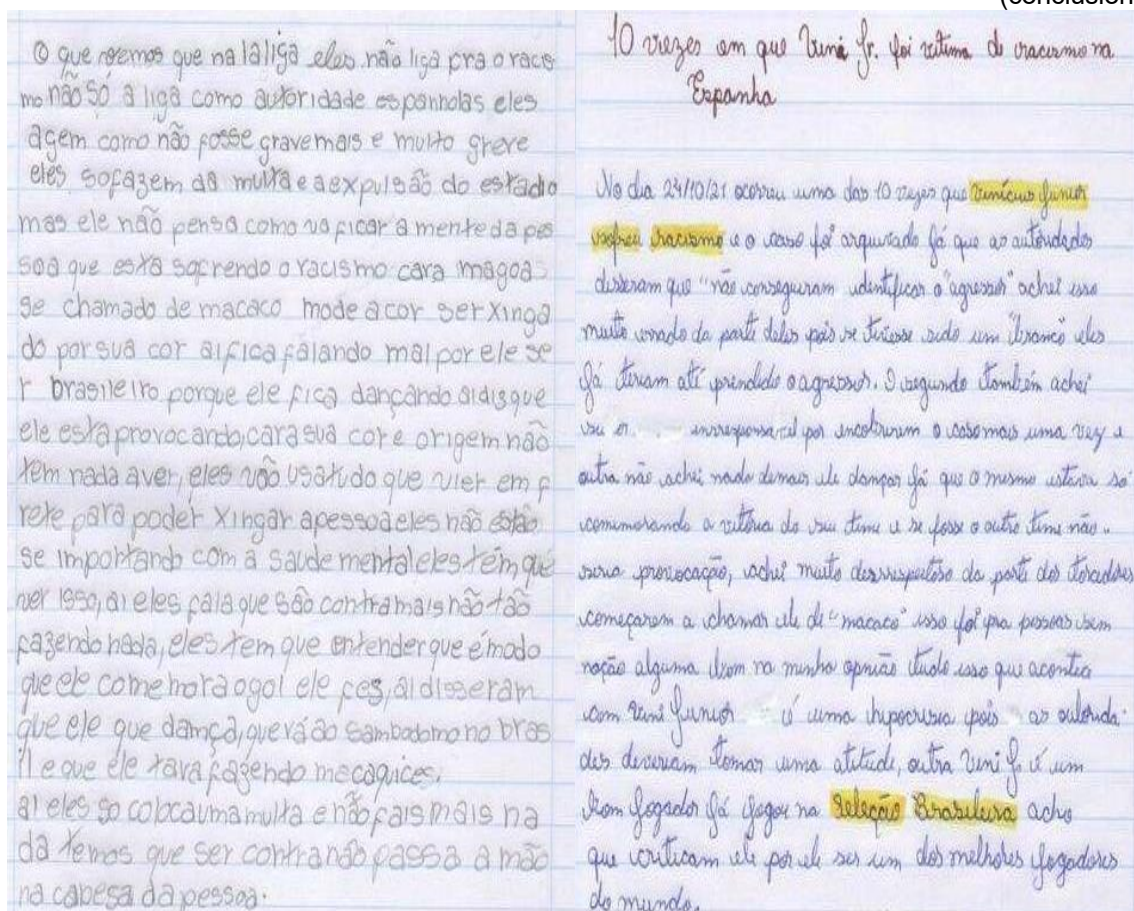 (conclusion
O que vemos que na laliga eles não liga pra o racis
mo não só a liga como autoridade espanholas eles
agem como não fosse grave mais e muito greve
eles so fazem da multa e a expulsão do estadio
mas ele não pensa como va ficar a mente da pes
soa que esta sofrendo o racismo cara magoa
se chamado de macaco mode a cor ser xinga
do por sua cor ai fica falando mal por ele se
r brasileiro porque ele fica dançando ai dis que
ele esta provocando, cara sua cor e origem não
tem nada aver, eles vão usa tudo que vier em f
rete para poder xingar a pessoa eles não estão
se importando com a saude mental eles têm que
ver isso, ai eles fala que são contra mais não tão
fazendo nada, eles tem que entender que é modo
que ele comemora o gol ele fes, ai disseram
que ele que damça, que vá ao sambodomo no bras
il e que ele tava fazendo macaquices.
ai eles so coloca uma multa e não fais mais na
da temos que ser contra não passa a mão
na cabesa da pessoa.
10 vezes em que Vini Jr. foi vitima de racismo na
Espanha
No dia 24/10/21 ocorreu uma das 10 vezes que Vinícius Junior
sofreu racismo e o caso foi arquivado já que as autoridades
disseram que "não conseguiram identificar o "agressor" achei isso
muito errado da parte deles pois se tivesse sido um "branco" eles
já teriam até prendido o agressor. O segundo também achei
irresponsavel por encobrirem o caso mais uma vez e
outra não achei nada demais ele dançar já que o mesmo estava só
comemorando a vitória do seu time e se fosse o outro time não
seria provocação, achei muito desrrespeitoso da parte dos torcedores
começarem a chamar ele de "macaco" isso foi pra pessoas sem
noção alguma bom na minha opnião tudo isso que acontece
com Vini Junior é uma hipocrisia pois as autorida-
des deveriam tomar uma atitude, outra Vini Jr é um
bom jogador já jogou na Seleção Brasileira acho
que criticam ele por ele ser um dos melhores jogadores
do mundo.